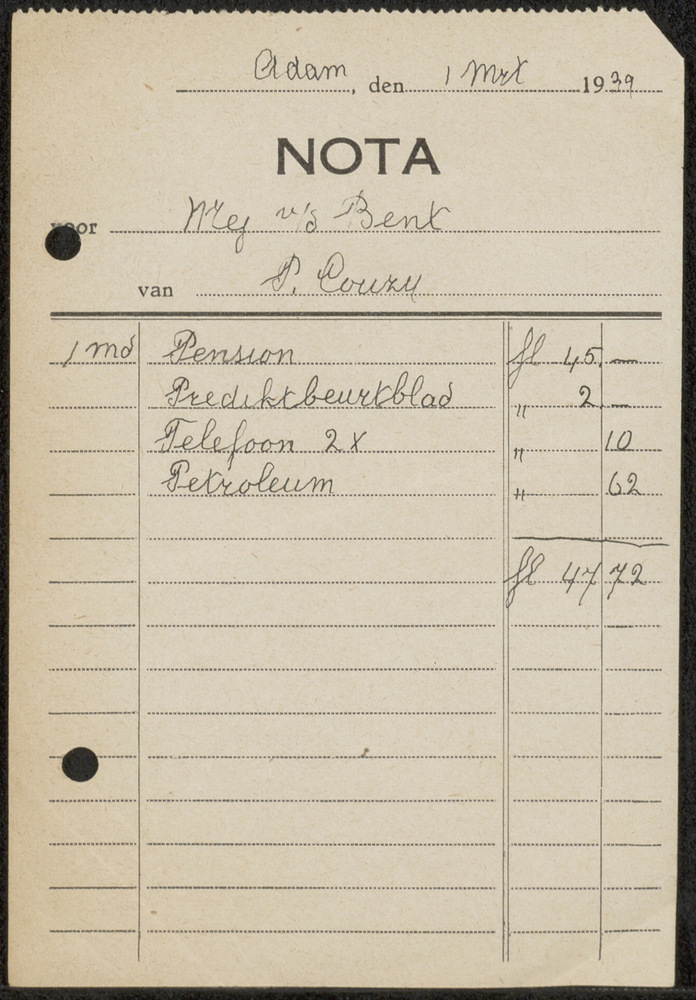 Adam, den 1 Mrt 1939
NOTA
voor Mej v/d Bent
van P. Couzy
1 md Pension fl 45,—
Prediktbeurtblad " 2,—
Telefoon 2x " 10
Petroleum " 62
fl 47 72